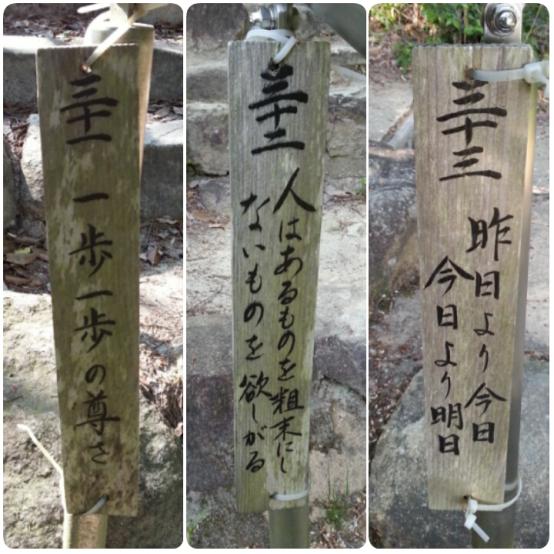 三十一
一歩一歩の尊さ
三十二
人はあるものを粗末にし
ないものを欲しがる
三十三
昨日より今日
今日より明日